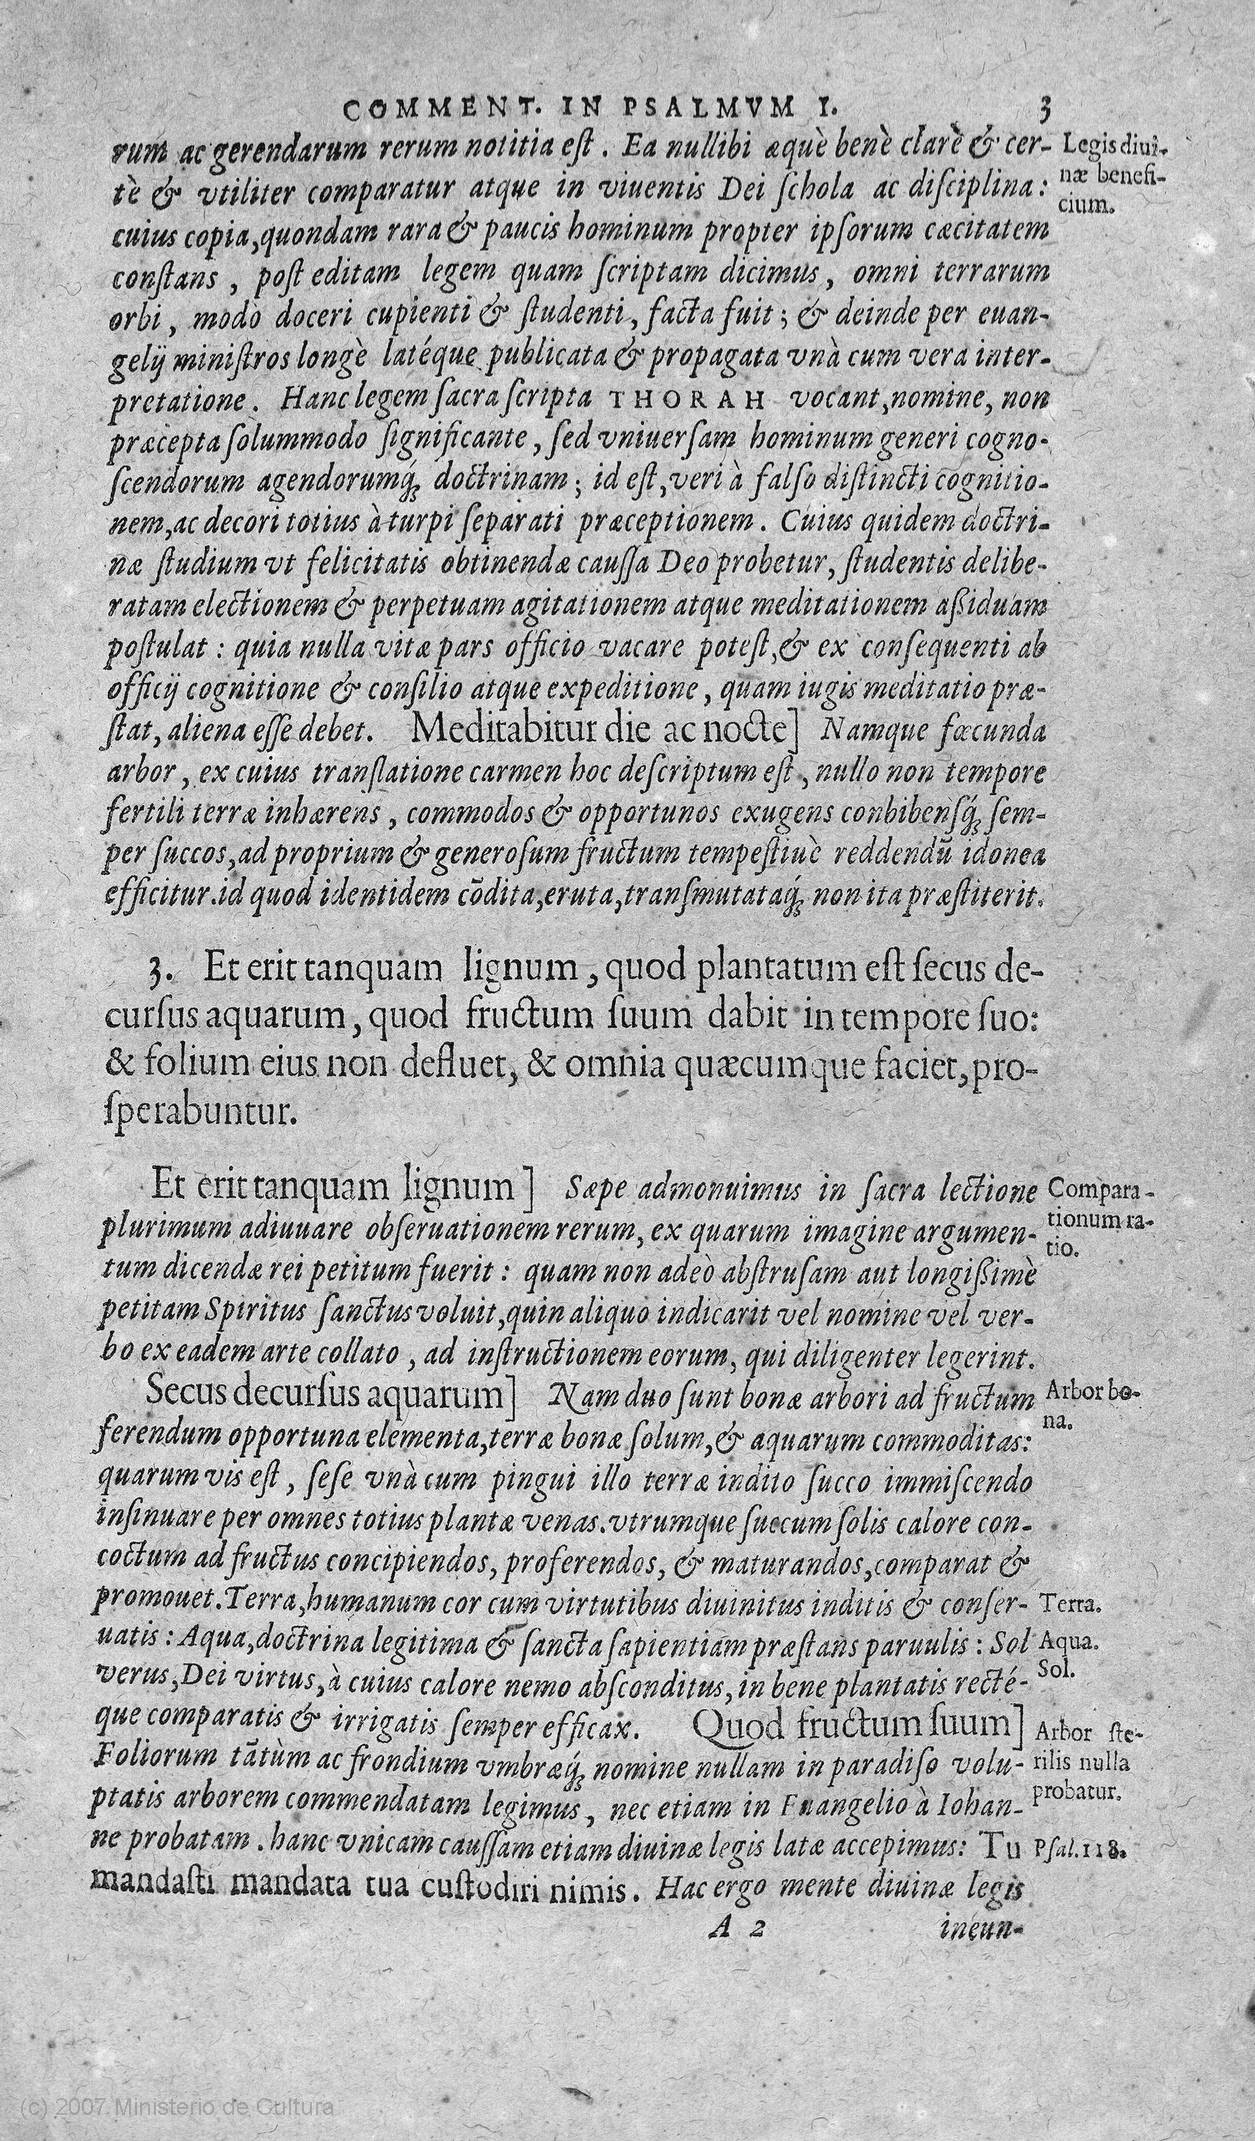 COMMENT. IN PSALMVM I. 3
rum ac gerendarum rerum notitia est. Ea nullibi æquè benè clarè & cer-
tè & vtiliter comparatur atque in viuentis Dei schola ac disciplina:
cuius copia, quondam rara & paucis hominum propter ipsorum cæcitatem
constans, post editam legem quam scriptam dicimus, omni terrarum
orbi, modò doceri cupienti & studenti, facta fuit; & deinde per euan-
gelij ministros longè latéque publicata & propagata vnà cum vera inter-
pretatione. Hanc legem sacra scripta THORAH vocant, nomine, non
præcepta solummodo significante, sed vniuersam hominum generi cogno-
scendorum agendorumq́; doctrinam; id est, veri à falso distincti cognitio-
nem, ac decori totius à turpi separati præceptionem. Cuius quidem doctri-
næ studium vt felicitatis obtinendæ caussa Deo probetur, studentis delibe-
ratam electionem & perpetuam agitationem atque meditationem aßiduam
postulat: quia nulla vitæ pars officio vacare potest, & ex consequenti ab
officij cognitione & consilio atque expeditione, quam iugis meditatio præ-
stat, aliena esse debet. Meditabitur die ac nocte] Namque fœcunda
arbor, ex cuius translatione carmen hoc descriptum est, nullo non tempore
fertili terræ inhærens, commodos & opportunos exugens conbibensq́; sem-
per succos, ad proprium & generosum fructum tempestiuè reddendū idonea
efficitur. id quod identidem cōdita, eruta, transmutataq́; non ita præstiterit.
Legis diui-
næ benefi-
cium.
3. Et erit tanquam lignum, quod plantatum est secus de-
cursus aquarum, quod fructum suum dabit in tempore suo:
& folium eius non defluet, & omnia quæcumque faciet, pro-
sperabuntur.
Et erit tanquam lignum] Sæpe admonuimus in sacra lectione
plurimum adiuuare obseruationem rerum, ex quarum imagine argumen-
tum dicendæ rei petitum fuerit: quam non adeò abstrusam aut longißimè
petitam Spiritus sanctus voluit, quin aliquo indicarit vel nomine vel ver-
bo ex eadem arte collato, ad instructionem eorum, qui diligenter legerint.
Compara-
tionum ra-
tio.
Secus decursus aquarum] Nam duo sunt bonæ arbori ad fructum
ferendum opportuna elementa, terræ bonæ solum, & aquarum commoditas:
quarum vis est, sese vnà cum pingui illo terræ indito succo immiscendo
insinuare per omnes totius plantæ venas. vtrumque succum solis calore con-
coctum ad fructus concipiendos, proferendos, & maturandos, comparat &
promouet. Terra, humanum cor cum virtutibus diuinitus inditis & conser-
uatis: Aqua, doctrina legitima & sancta sapientiam præstans paruulis: Sol
verus, Dei virtus, à cuius calore nemo absconditus, in bene plantatis recté-
que comparatis & irrigatis semper efficax. Quod fructum suum]
Foliorum tātùm ac frondium vmbræq́; nomine nullam in paradiso volu-
ptatis arborem commendatam legimus, nec etiam in Euangelio à Iohan-
ne probatam. hanc vnicam caussam etiam diuinæ legis latæ accepimus: Tu
mandasti mandata tua custodiri nimis. Hac ergo mente diuinæ legis
Arbor bo-
na.
Terra.
Aqua.
Sol.
Arbor ste-
rilis nulla
probatur.
Psal. 118.
A 2 ineun-
(c) 2007 Ministerio de Cultura